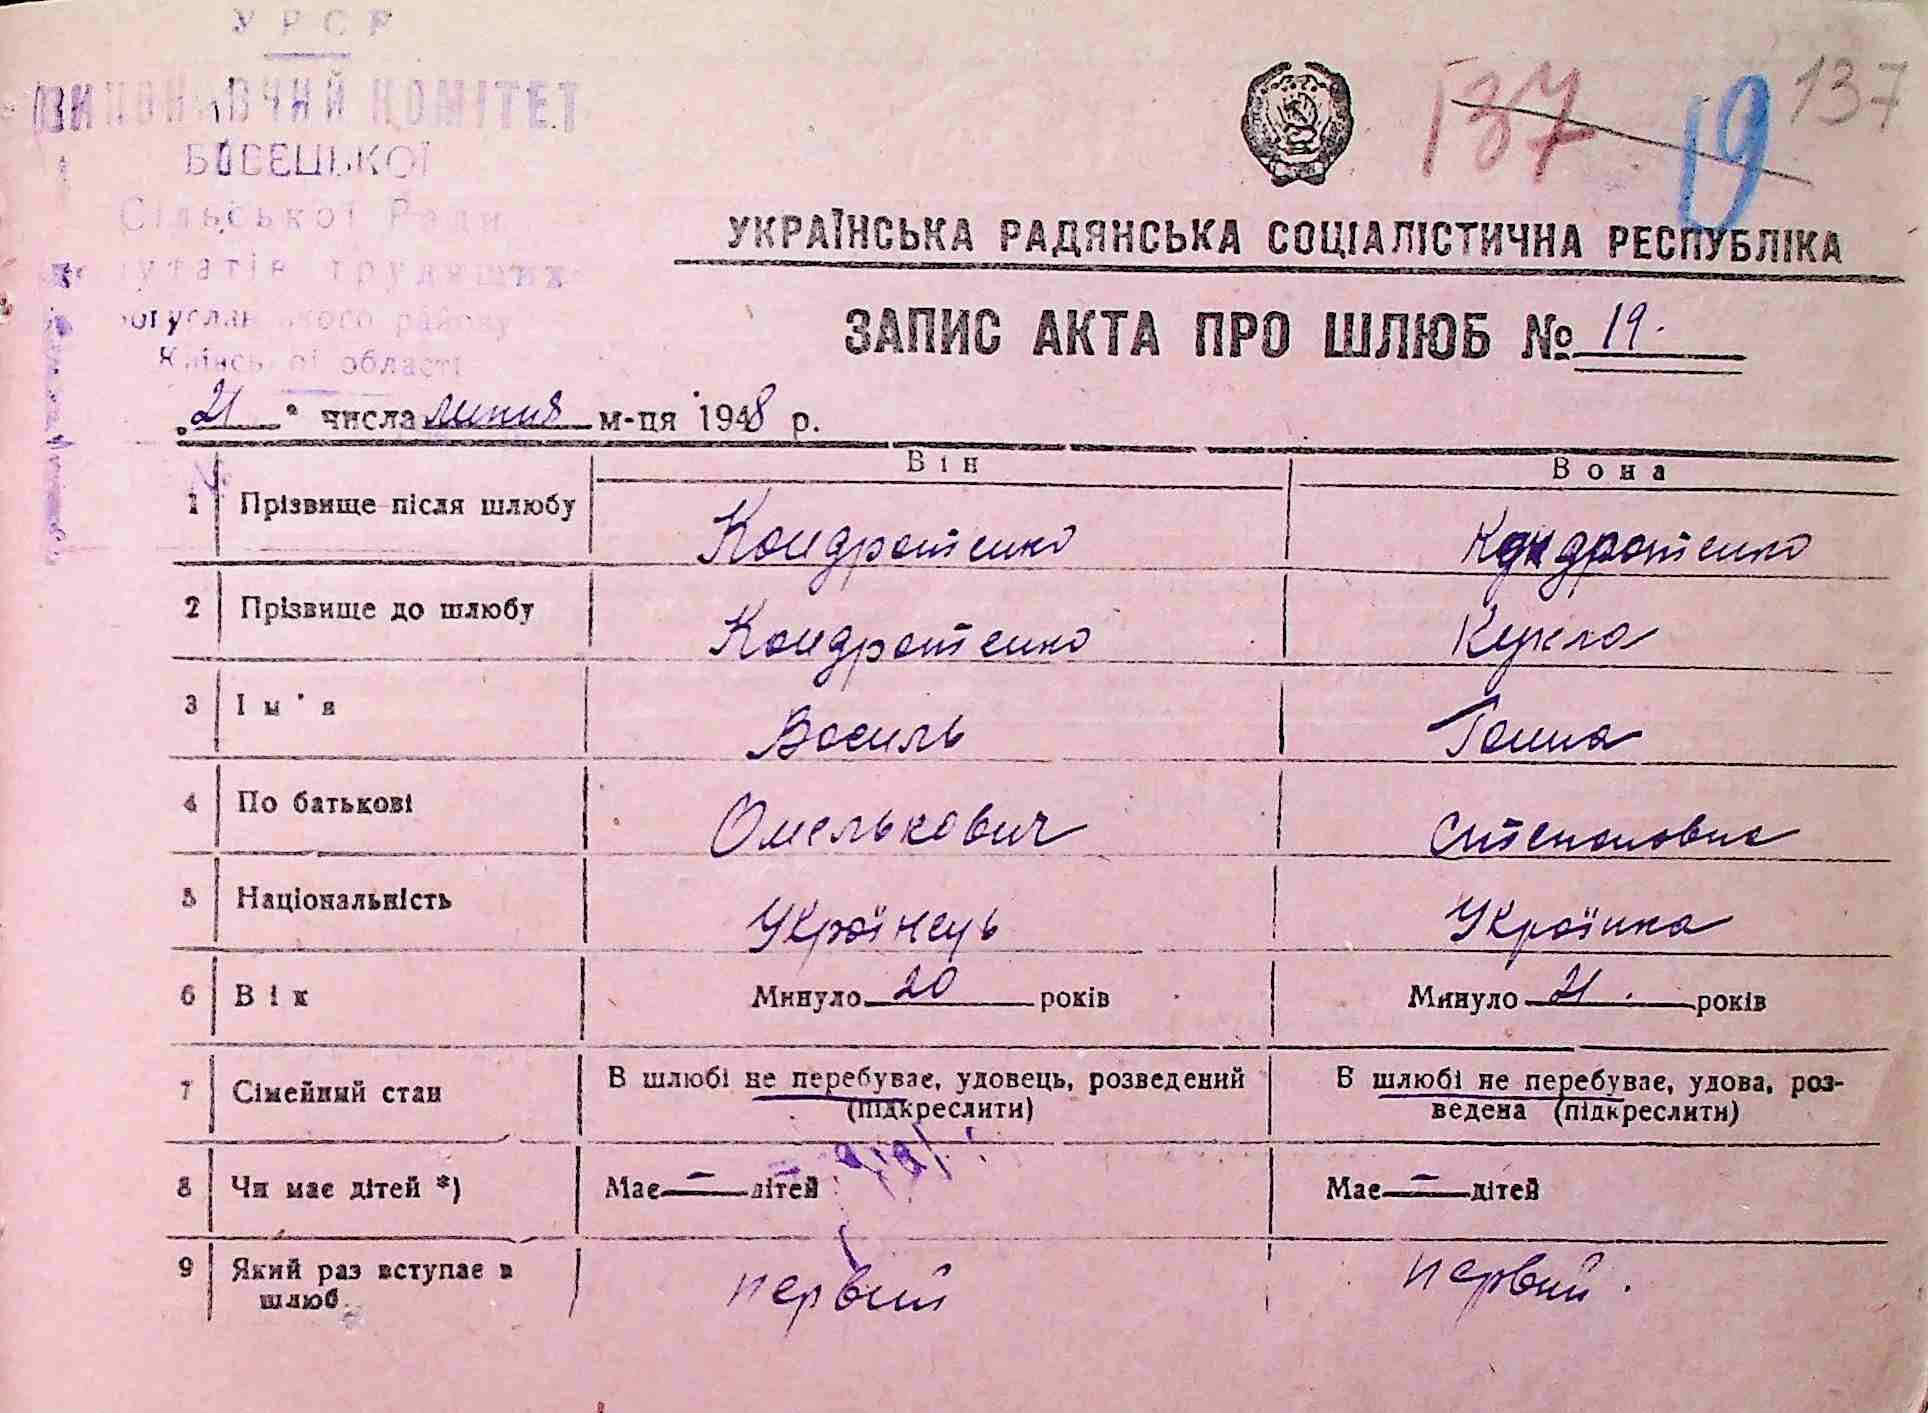 УРСР
ВИКОНАВЧИЙ КОМІТЕТ
Сільської Ради
депутатів трудящих
Богуславського району
Київської області
137 19 137
УКРАЇНСЬКА РАДЯНСЬКА СОЦІАЛІСТИЧНА РЕСПУБЛІКА
ЗАПИС АКТА ПРО ШЛЮБ № 19.
„21" числа липня м-ця 1948 р.
Він Вона
1 Прізвище після шлюбу Кондратенко Кондратенко
2 Прізвище до шлюбу Кондратенко Кукла
3 Ім'я Василь Ганна
4 По батькові Омелькович Степановна
5 Національність Українець Українка
6 Вік Минуло 20 років Минуло 21. років
7 Сімейний стан В шлюбі не перебуває, удовець, розведений В шлюбі не перебуває, удова, роз-
(підкреслити) ведена (підкреслити)
8 Чи має дітей *) Має — дітей Має — дітей
9 Який раз вступає в первий первий.
шлюб